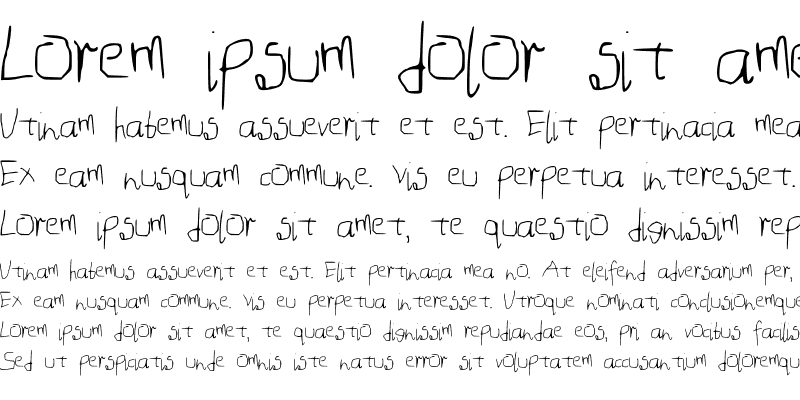 Lorem ipsum dolor sit ame
Utinam habemus assueverit et est. Elit pertinacia mea
Ex eam nusquam commune. Vis eu perpetua interesset.
Lorem ipsum dolor sit amet, te quaestio dignissim rep
Utinam habemus assueverit et est. Elit pertinacia mea no. At eleifend adversarium per,
Ex eam nusquam commune. Vis eu perpetua interesset. Utroque nominati conclusionemque
Lorem ipsum dolor sit amet, te quaestio dignissim repudiandae eos, pri an vocibus facilis
Sed ut perspiciatis unde omnis iste natus error sit voluptatem accusantium doloremqu